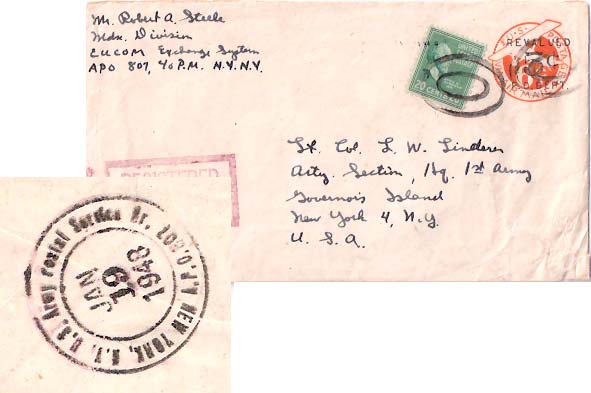 Mr. Robert A. Steele
Mdse. Division
EUCOM Exchange System
APO 807, % P.M. N.Y. N.Y.
20 CENTS 20
U.S. POSTAGE
REVALUED
5c
P.O. DEPT.
VIA AIR MAIL
Lt. Col. L. W. Linderer
Arty. Section, Hq. 1st Army
Governors Island
New York 4, N.Y.
U. S. A.
REGISTERED
U.S. Army Postal Service Br. 807
A.P.O. NEW YORK, N.Y.
JAN
19
1948